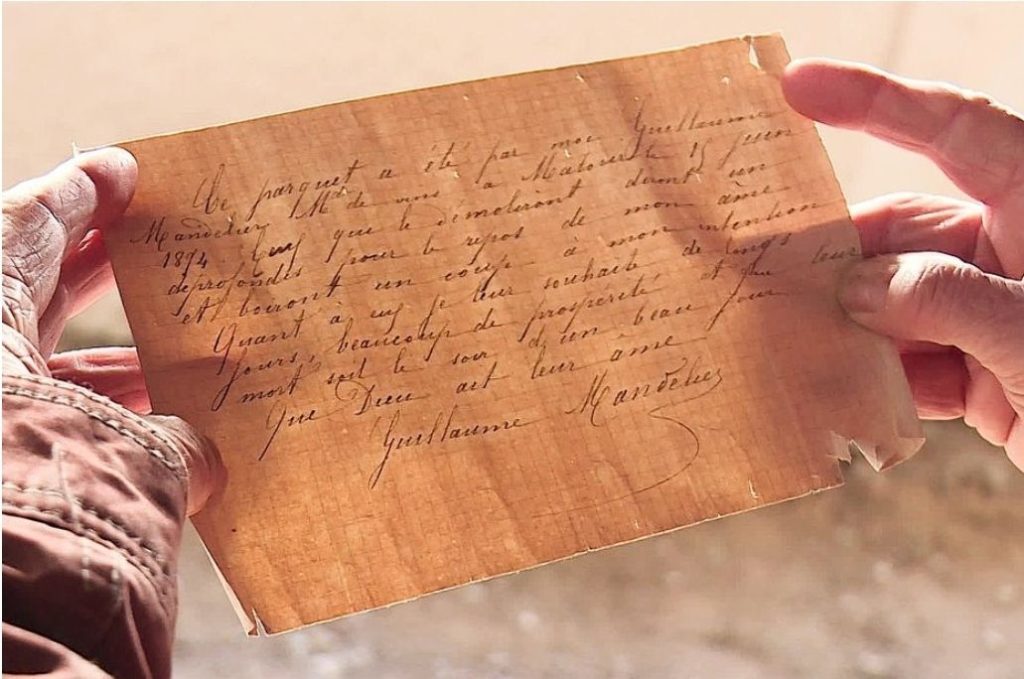 Ce parquet a été par moi Guillaume
Mandelier Md de vins a Matour le 15 juin
1894. Ceux que le démoliront diront un
deprofondis pour le repos de mon âme
et boiront un coup à mon intention
Quant à eux je leur souhaite de longs
jours, beaucoup de prospérité et que leur
mort soit le soir d'un beau jour
Que Dieu ait leur âme
Guillaume Mandelier